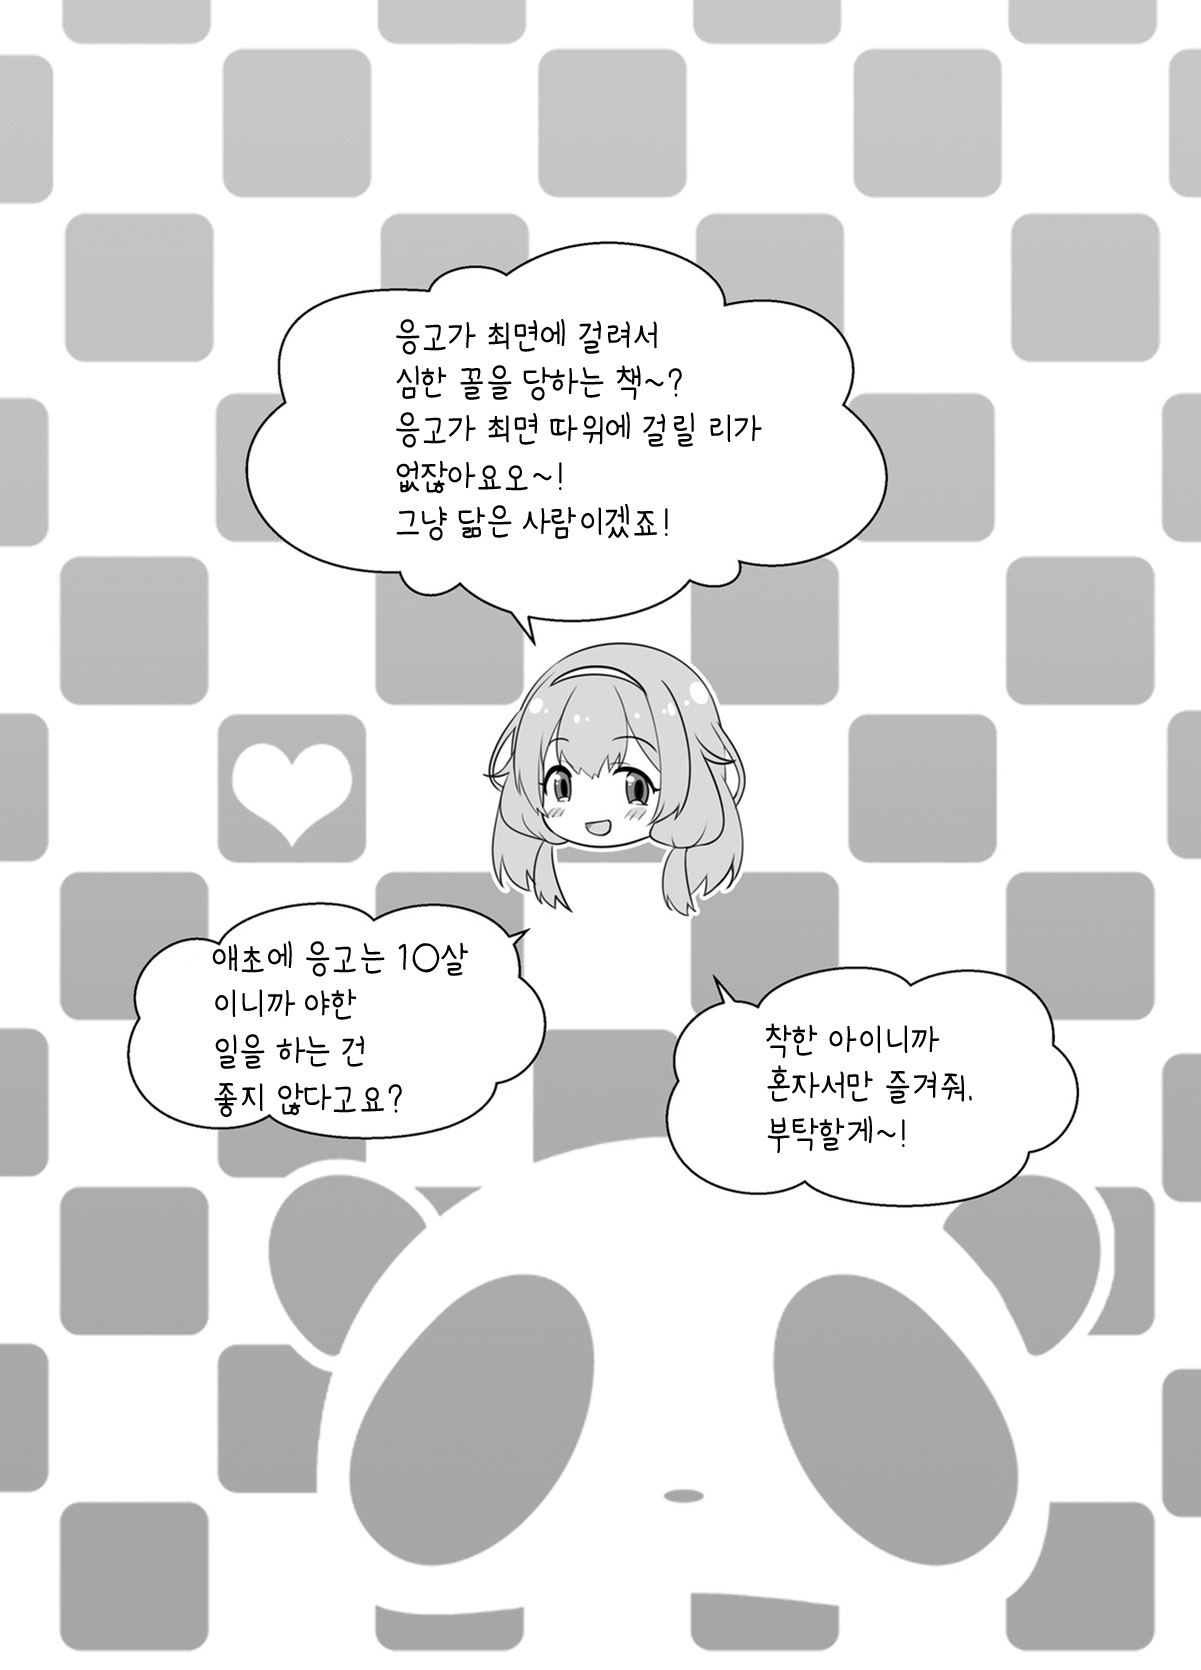 응고가 최면에 걸려서
심한 꼴을 당하는 책~?
응고가 최면 따위에 걸릴 리가
없잖아요오~!
그냥 닮은 사람이겠죠!
애초에 응고는 1○살
이니까 야한
일을 하는 건
좋지 않다고요?
착한 아이니까
혼자서만 즐겨줘.
부탁할게~!